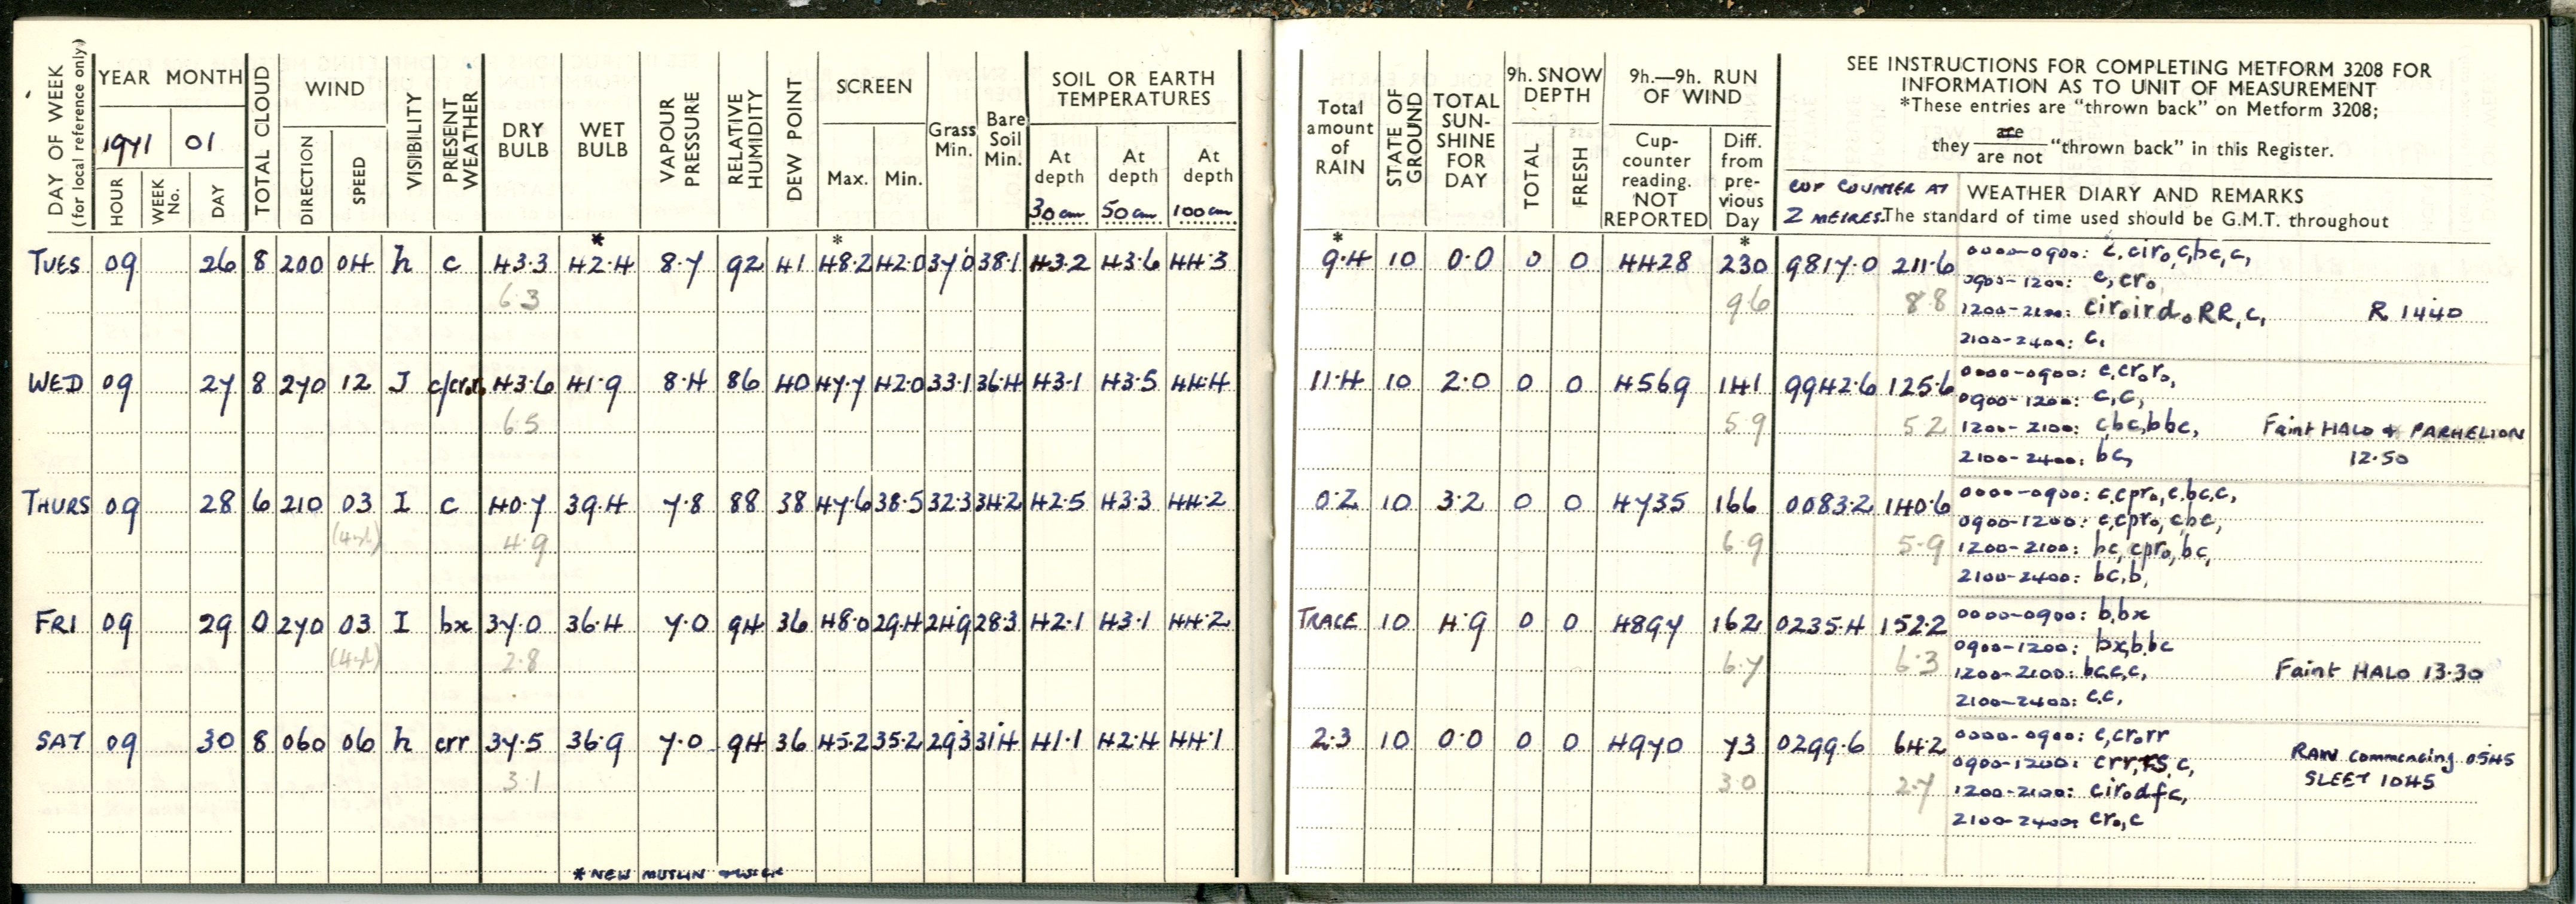 DAY OF WEEK
(for local reference only)
YEAR MONTH
1971 01
HOUR
WEEK No.
DAY
TOTAL CLOUD
WIND
DIRECTION
SPEED
VISIBILITY
PRESENT WEATHER
DRY BULB
WET BULB
VAPOUR PRESSURE
RELATIVE HUMIDITY
DEW POINT
SCREEN
Max. Min.
Grass Min.
Bare Soil Min.
SOIL OR EARTH
TEMPERATURES
At depth At depth At depth
30 cm 50 cm 100 cm
Total amount of RAIN
STATE OF GROUND
TOTAL SUN-SHINE FOR DAY
9h. SNOW DEPTH
TOTAL
FRESH
9h.—9h. RUN OF WIND
Cup-counter reading. NOT REPORTED
Diff. from pre-vious Day
SEE INSTRUCTIONS FOR COMPLETING METFORM 3208 FOR
INFORMATION AS TO UNIT OF MEASUREMENT
*These entries are "thrown back" on Metform 3208;
they are / are not "thrown back" in this Register.
CUP COUNTER AT
2 METRES.
WEATHER DIARY AND REMARKS
The standard of time used should be G.M.T. throughout
* * * *
TUES 09 26 8 200 04 h c 43.3 42.4 8.7 92 41 48.2 42.0 37.0 38.1 43.2 43.6 44.3 9.4 10 0.0 0 0 4428 230 9817.0 211.6 0000-0900: c,ciro,c,bc,c,
0900-1200: c,cro
6.3 9.6 8.8 1200-2100: ciroirdoRR,c, R 1440
2100-2400: c,
WED 09 27 8 270 12 J c/cro 43.6 41.9 8.4 86 40 47.7 42.0 33.1 36.4 43.1 43.5 44.4 11.4 10 2.0 0 0 4569 141 9942.6 125.6 0000-0900: c,croro,
0900-1200: c,c,
6.5 5.9 5.2 1200-2100: cbc,bbc, Faint HALO + PARHELION
2100-2400: bc, 12.50
THURS 09 28 6 210 03 I c 40.7 39.4 7.8 88 38 47.6 38.5 32.3 34.2 42.5 43.3 44.2 0.2 10 3.2 0 0 4735 166 0083.2 140.6 0000-0900: c,cpro,c,bc,c,
0900-1200: c,cpro,cbc,
4.9 6.9 5.9 1200-2100: bc,cpro,bc,
2100-2400: bc,b,
FRI 09 29 0 270 03 I bx 37.0 36.4 7.0 94 36 48.0 29.4 24.9 28.3 42.1 43.1 44.2 TRACE 10 4.9 0 0 4897 162 0235.4 152.2 0000-0900: b,bx
0900-1200: bx,b,bc
2.8 6.7 6.3 1200-2100: bc,c,c, Faint HALO 13.30
2100-2400: c,c,
SAT 09 30 8 060 06 h crr 37.5 36.9 7.0 94 36 45.2 35.2 29.3 31.4 41.1 42.4 44.1 2.3 10 0.0 0 0 4970 73 0299.6 64.2 0000-0900: c,crorr
0900-1200: crr,rs,c, RAIN commencing 0545
3.1 3.0 2.7 1200-2100: cirodfc, SLEET 1045
2100-2400: cro,c
* NEW MUSLIN + WICK